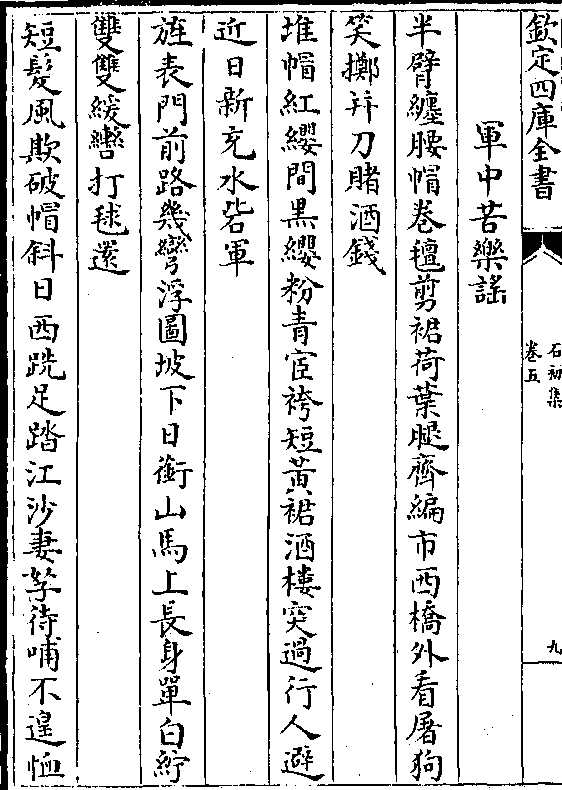 欽定四庫全書
石初集
卷五
九
軍中苦樂謠
半臂纏腰帽卷氊剪裙荷葉腿齊編市西橋外看屠狗
笑擲并刀賭酒錢
堆帽紅纓間黒纓粉青宦袴短黄裙酒樓突過行人避
近日新充水砦軍
旌表門前路幾彎浮圖坡下日銜山馬上長身單白紵
雙雙緩轡打毬還
短髮風欺破帽斜日西跣足踏江沙妻孥待哺不遑恤